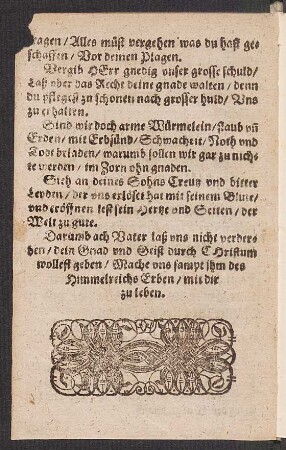 tragen / Alles müst vergehen was du hast ge-
schaffen / Vor deinen Plagen.
Vergib HErr gnedig vnser grosse schuld /
Laß vber das Recht deine gnade walten / denn
du pflegest zu schonen nach grosser huld / Vns
zu erhalten.
Sind wir doch arme Würmelein / staub vñ
Erden / mit Erbsünd / Schwacheit / Noth vnd
Todt beladen / warumb sollen wir gar zu nich-
te werden / im Zorn ohn gnaden.
Sieh an deines Sohns Creutz vnd bitter
Leyden / der vns erlöset hat mit seinem Blute /
vnd eröffnen lest sein Hertze vnd Seiten / der
Welt zu gute.
Darumb ach Vater laß vns nicht verder-
ben / dein Gnad vnd Geist durch Christum
wollest geben / Mache vns sampt ihm des
Himmelreichs Erben / mit dir
zu leben.